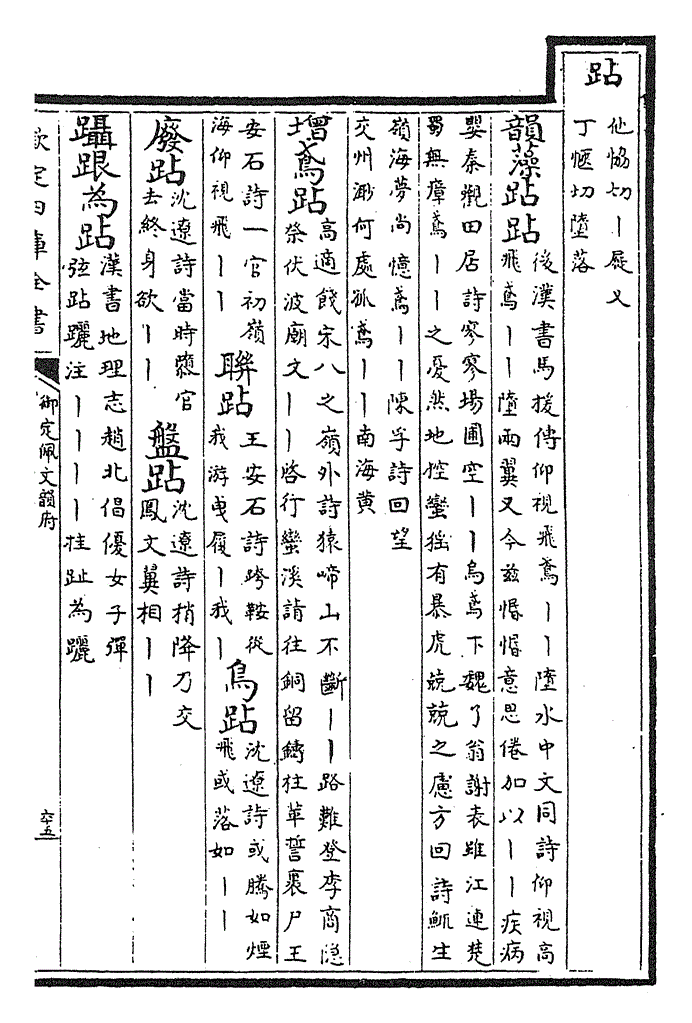 跕
他愶切丨屣又
丁愜切墮落
韻藻跕跕
後漢書馬援傳仰視飛鳶丨丨墮水中文同詩仰視高
飛鳶丨丨墮兩翼又今兹惛惛意思倦加以丨丨疾病
嬰秦觀田居詩寥寥場圃空丨丨烏鳶下魏了翁謝表雖江連楚
蜀無瘴鳶丨丨之憂然地控蠻猺有暴虎兢兢之慮方回詩魷生
嶺海夢尚憶鳶丨丨陳孚詩回望
交州渺何處孤鳶丨丨南海黃
增鳶跕
高適餞宋八之嶺外詩猿啼山不斷丨丨路難登李商隱
祭伏波廟文丨丨啓行蠻溪請往銅留鑄柱革誓裹尸王
安石詩一官初嶺
海仰視飛丨丨
聯跕
王安石詩跨鞍從
我游曳履丨我丨
烏跕
沈遼詩或騰如煙
飛或落如丨丨
廢跕
沈遼詩當時官
去終身欲丨丨
盤跕
沈遼詩梢降乃交
鳳文翼相丨丨
躡跟為跕
漢書地理志趙北倡優女子彈
弦跕躧注丨丨丨丨拄趾為躧
欽定四庫全書
御定佩文韻府